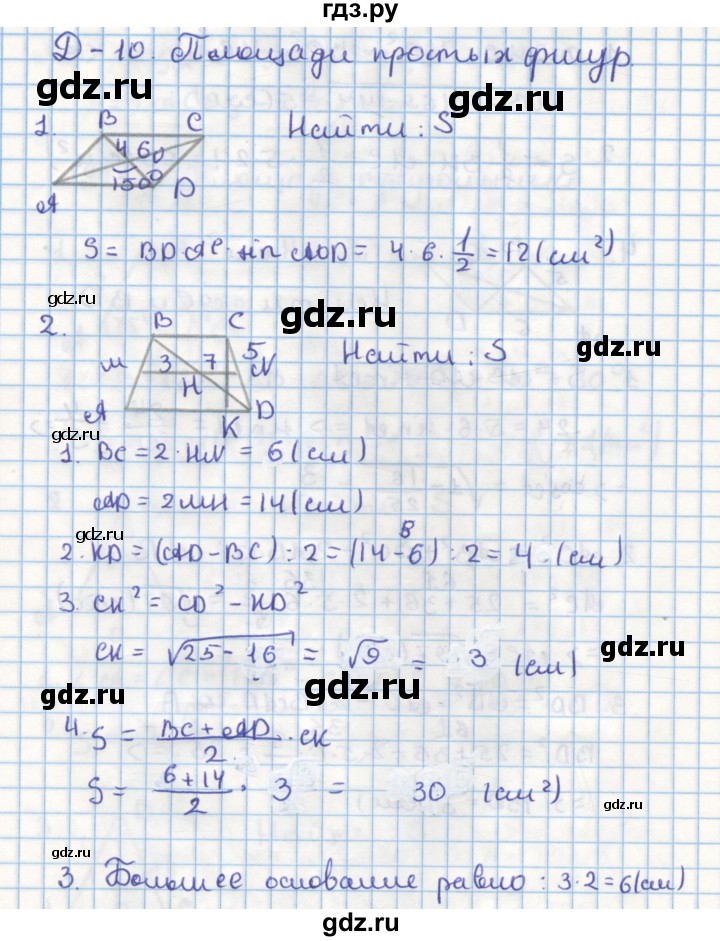 гдз.ру
Д-10. Площади простых фигур.
gdz.ru
gdz.ru
1.
B
C
4
6
150°
A
D
Найти: S
S = BD·AC·sin AOD = 4·6·1/2 = 12 (см²)
gdz.ru
gdz.ru
2.
B
C
M
3
7
5
N
H
A
K
D
Найти: S
gdz.ru
1. BC = 2·HN = 6 (см)
AD = 2MH = 14 (см)
gdz.ru
8
2. KD = (AD-BC):2 = (14-6):2 = 4·(см)
3. CK² = CD² - KD²
CK = √25-16 = √9 = 3 (см)
gdz.ru
gdz.ru
gdz.ru
4. S = BC+AD/2 · CK
S = 6+14/2 · 3 = 30 (см²)
gdz.ru
gdz.ru
3. Большее основание равно: 3·2=6(см)
gdz.ru